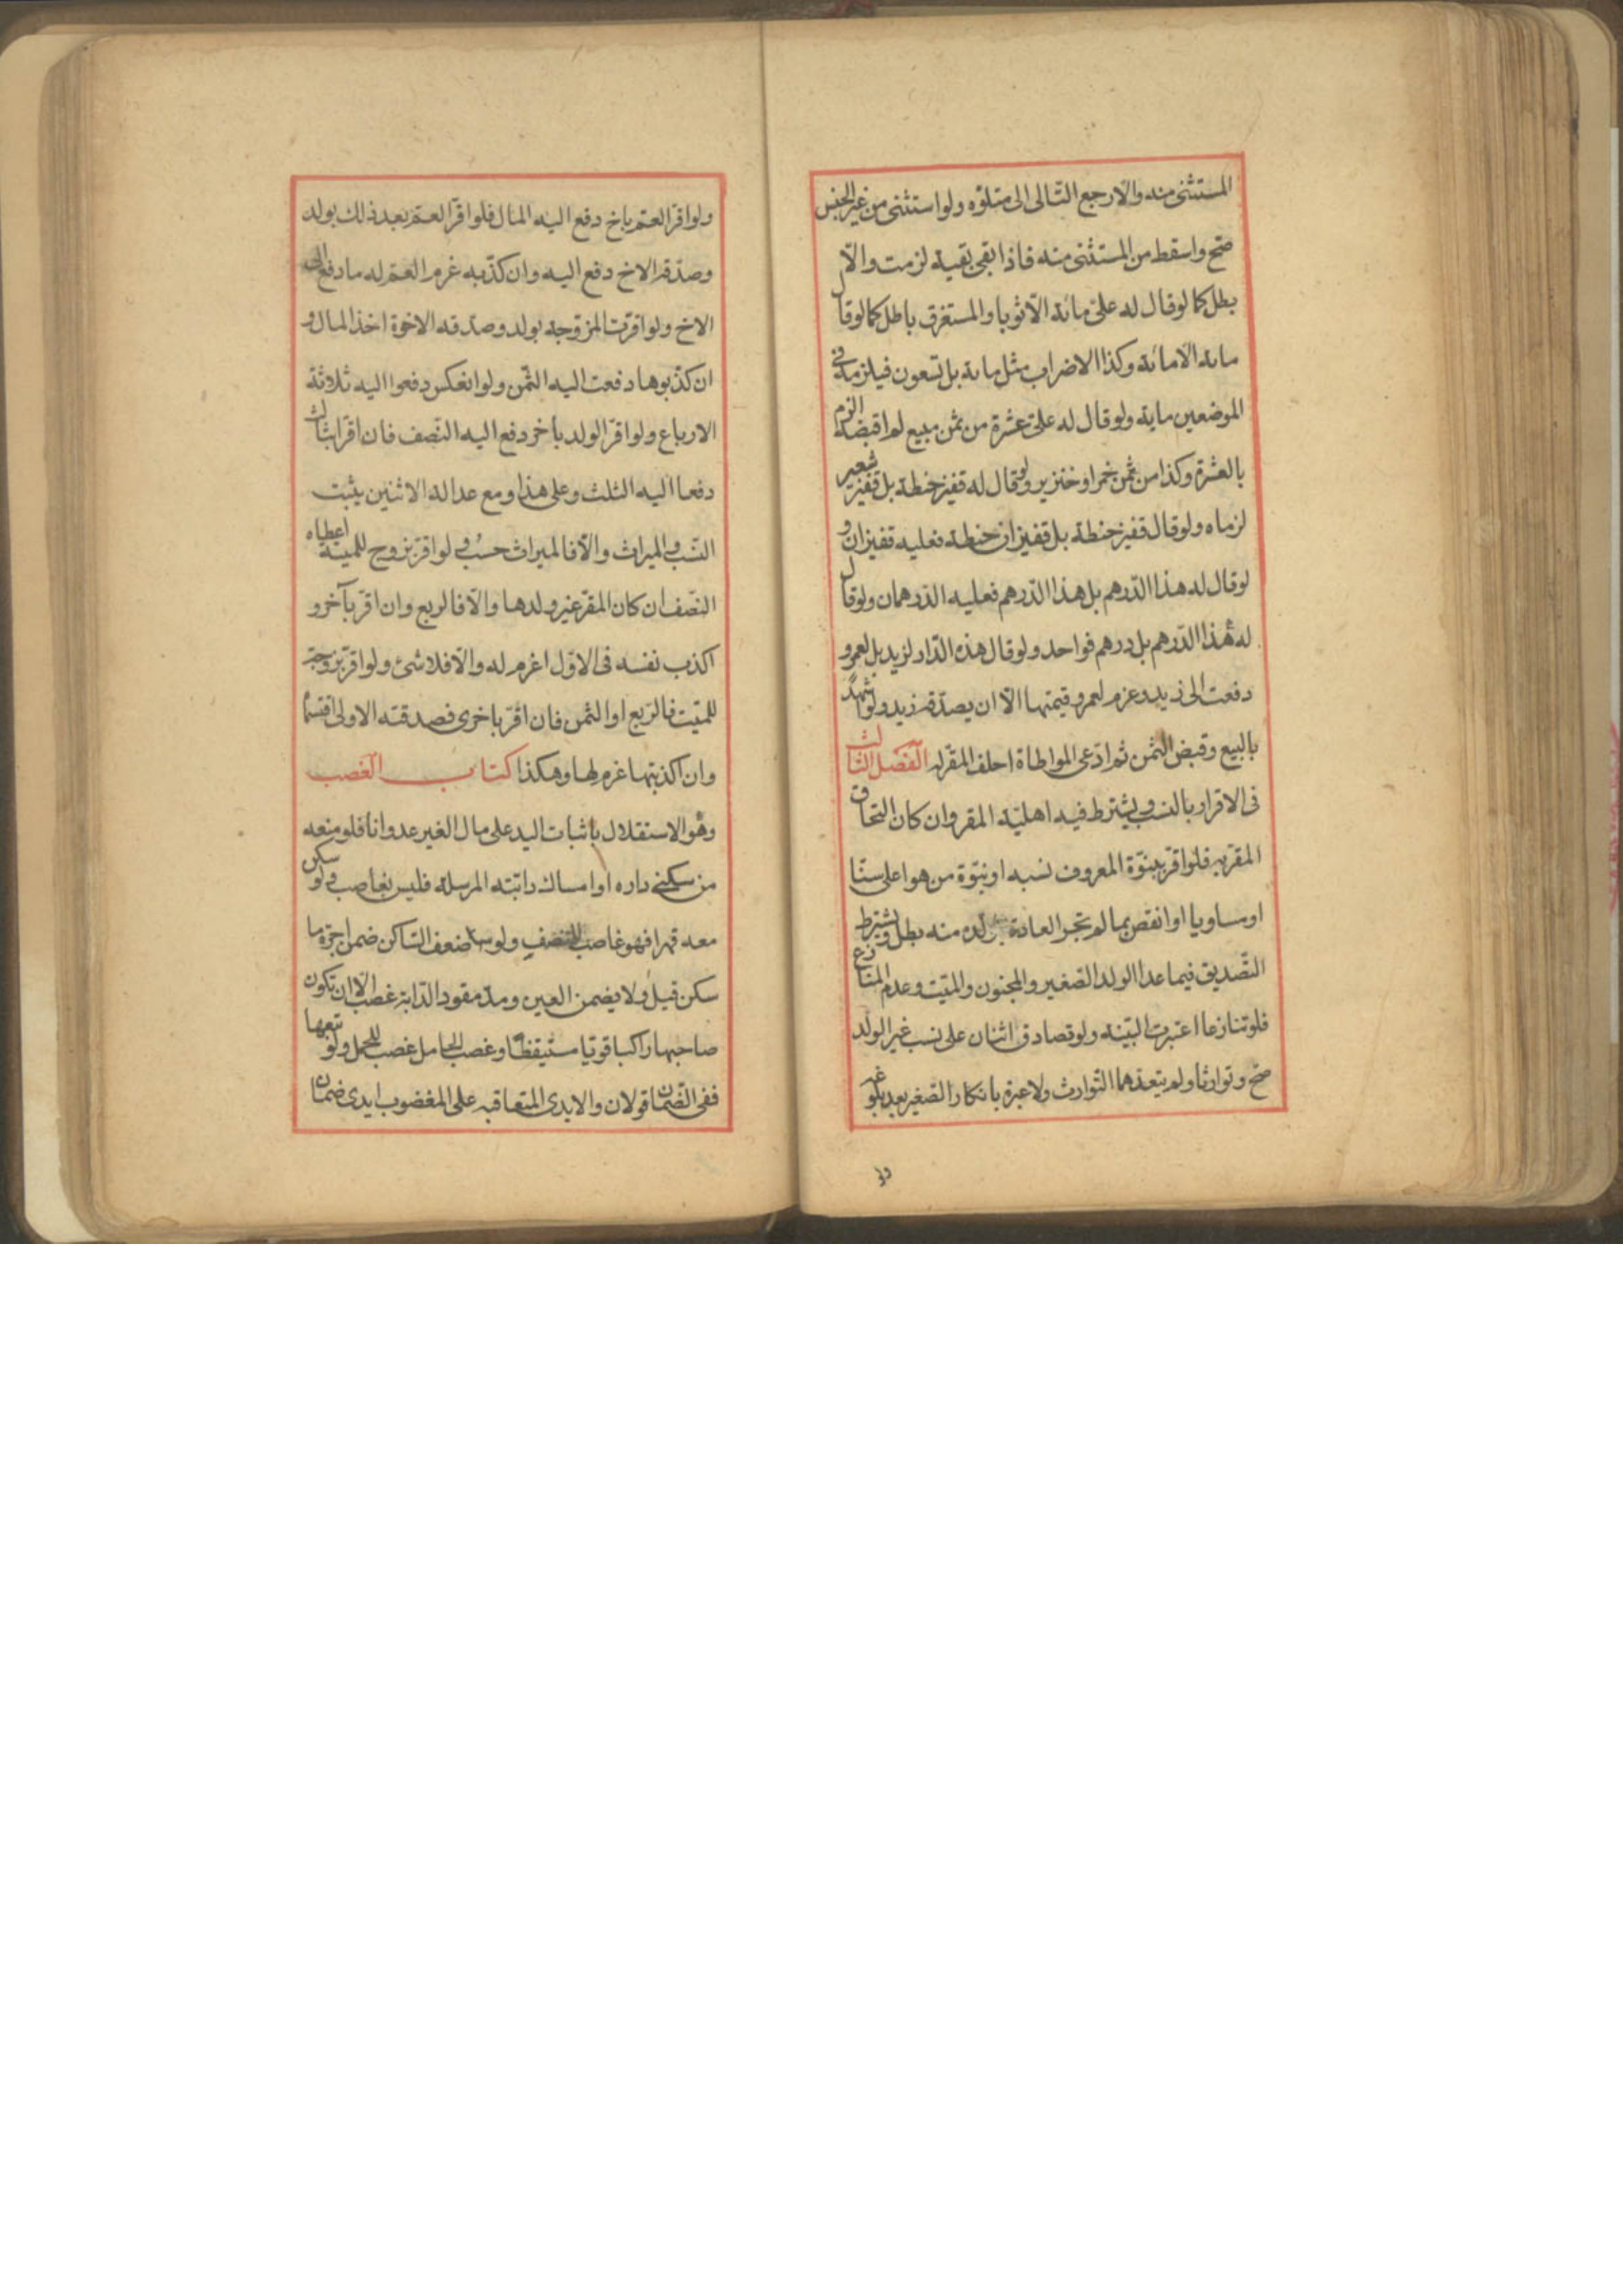 المستثنى منه والّا رجع التّالى الى متلوّه ولو استثنى من غير الجنس
صحّ واسقط من المستثنى منه فاذا بقى بقية لزمت والّا
بطل كما لو قال له علىّ مائة الّا ثوبا والمستغرق باطل كما لو قال
ماىة الّا مائة وكذا الاضراب مثل ماىة بل تسعون فيلزمه فى
الموضعين ماية ولو قال له علىّ عشرة من ثمن مبيع لم اقبضه الزم
بالعشرة وكذا من ثمن خمر او خنزير ولو قال له قفيز حنطة بل قفيز شعير
لزماه ولو قال قفيز حنطة بل قفيزان حنطة فعليه قفيزان و
لو قال له هذا الدّرهم بل هذا الدّرهم فعليه الدّرهمان ولو قال
له هذا الدّرهم بل درهم فواحد ولو قال هذه الدّار لزيد بل لعمرو
دفعت الى زيد وغرم لعمرو قيمتها الّا ان يصدّقه زيد ولو شهد
بالبيع وقبض الثّمن ثم ادّعى المواطاة احلف المقرّله الفصل الثالث
فى الاقرار بالنسب ويشترط فيه اهليّة المقر وان كان التحاق
المقرّ به فلو اقرّ ببنوّة المعروف نسبه او بنوّة من هو اعلى سنّا
او مساويا او انقص بما لم تجر العادة منه بطل ويشترط
التّصديق فيما عدا الولد الصّغير والمجنون والميّت وعدم المنازع
فلو تنازعا اعتبرت البيّنة ولو تصادق اثنان على نسب غير الولد
صحّ وتوارثا ولم يتعدّهما التّوارث ولا عبرة بانكار الصّغير بعد بلوغه
ولو
ولو اقرّ العمّ باخ دفع اليه المال فلو اقرّ العمّ بعد ذلك بولد
وصدّقه الاخ دفع اليه وان كذّبه غرم العمّ له ما دفع الى
الاخ ولو اقرّت الزّوجة بولد وصدّقه الاخوة اخذ المال و
ان كذّبوها دفعت اليه الثّمن ولو انعكس دفعوا اليه ثلاثة
الارباع ولو اقرّ الولد بآخر دفع اليه النّصف فان اقرّا بثالث
دفعا اليه الثلث وعلى هذا ومع عدالة الاثنين يثبت
النّسب والميراث والّا فالميراث حسب ولو اقرّ بزوج للميّتة اعطاه
النّصف ان كان المقرّ غير ولدها والّا فالربع وان اقرّ بآخر و
اكذب نفسه فى الاوّل اغرم له والّا فلا شئ ولو اقرّ بزوجة
للميّت فالرّبع او الثمن فان اقرّ باخرى فصدقته الاولى اقتسما
وان اكذبتها غرم لها وهكذا كتاب الغصب
وهو الاستقلال باثبات اليد على مال الغير عدوانا فلو منعه
من سكنى داره او امساك دابّته المرسلة فليس بغاصب ولو سكن
معه قهرا فهو غاصب للنصف ولو ضعف السّاكن ضمن اجرة ما
سكن قيل ولا يضمن العين ومدّ مقود الدّابة غصب الّا ان تكون
صاحبها راكبا قويّا مستيقظا وغصب الحامل غصب للحمل ولو تبعها
ففى الضّمان قولان والايدى المتعاقبه على المغضوب ايدى ضمان